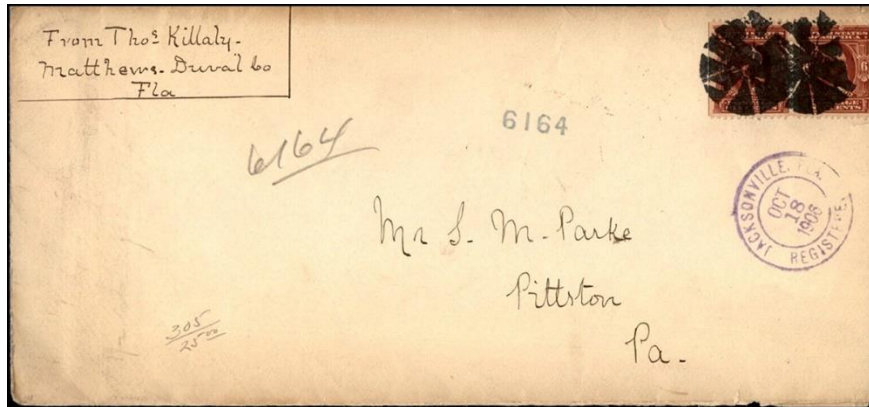 From Thos Killaly.
Matthews. Duval Co
Fla
6164
6164
JACKSONVILLE, FLA.
OCT
18
1906
REGISTERED
Mr S. M. Parke
Pittston
Pa.
305
2500
6